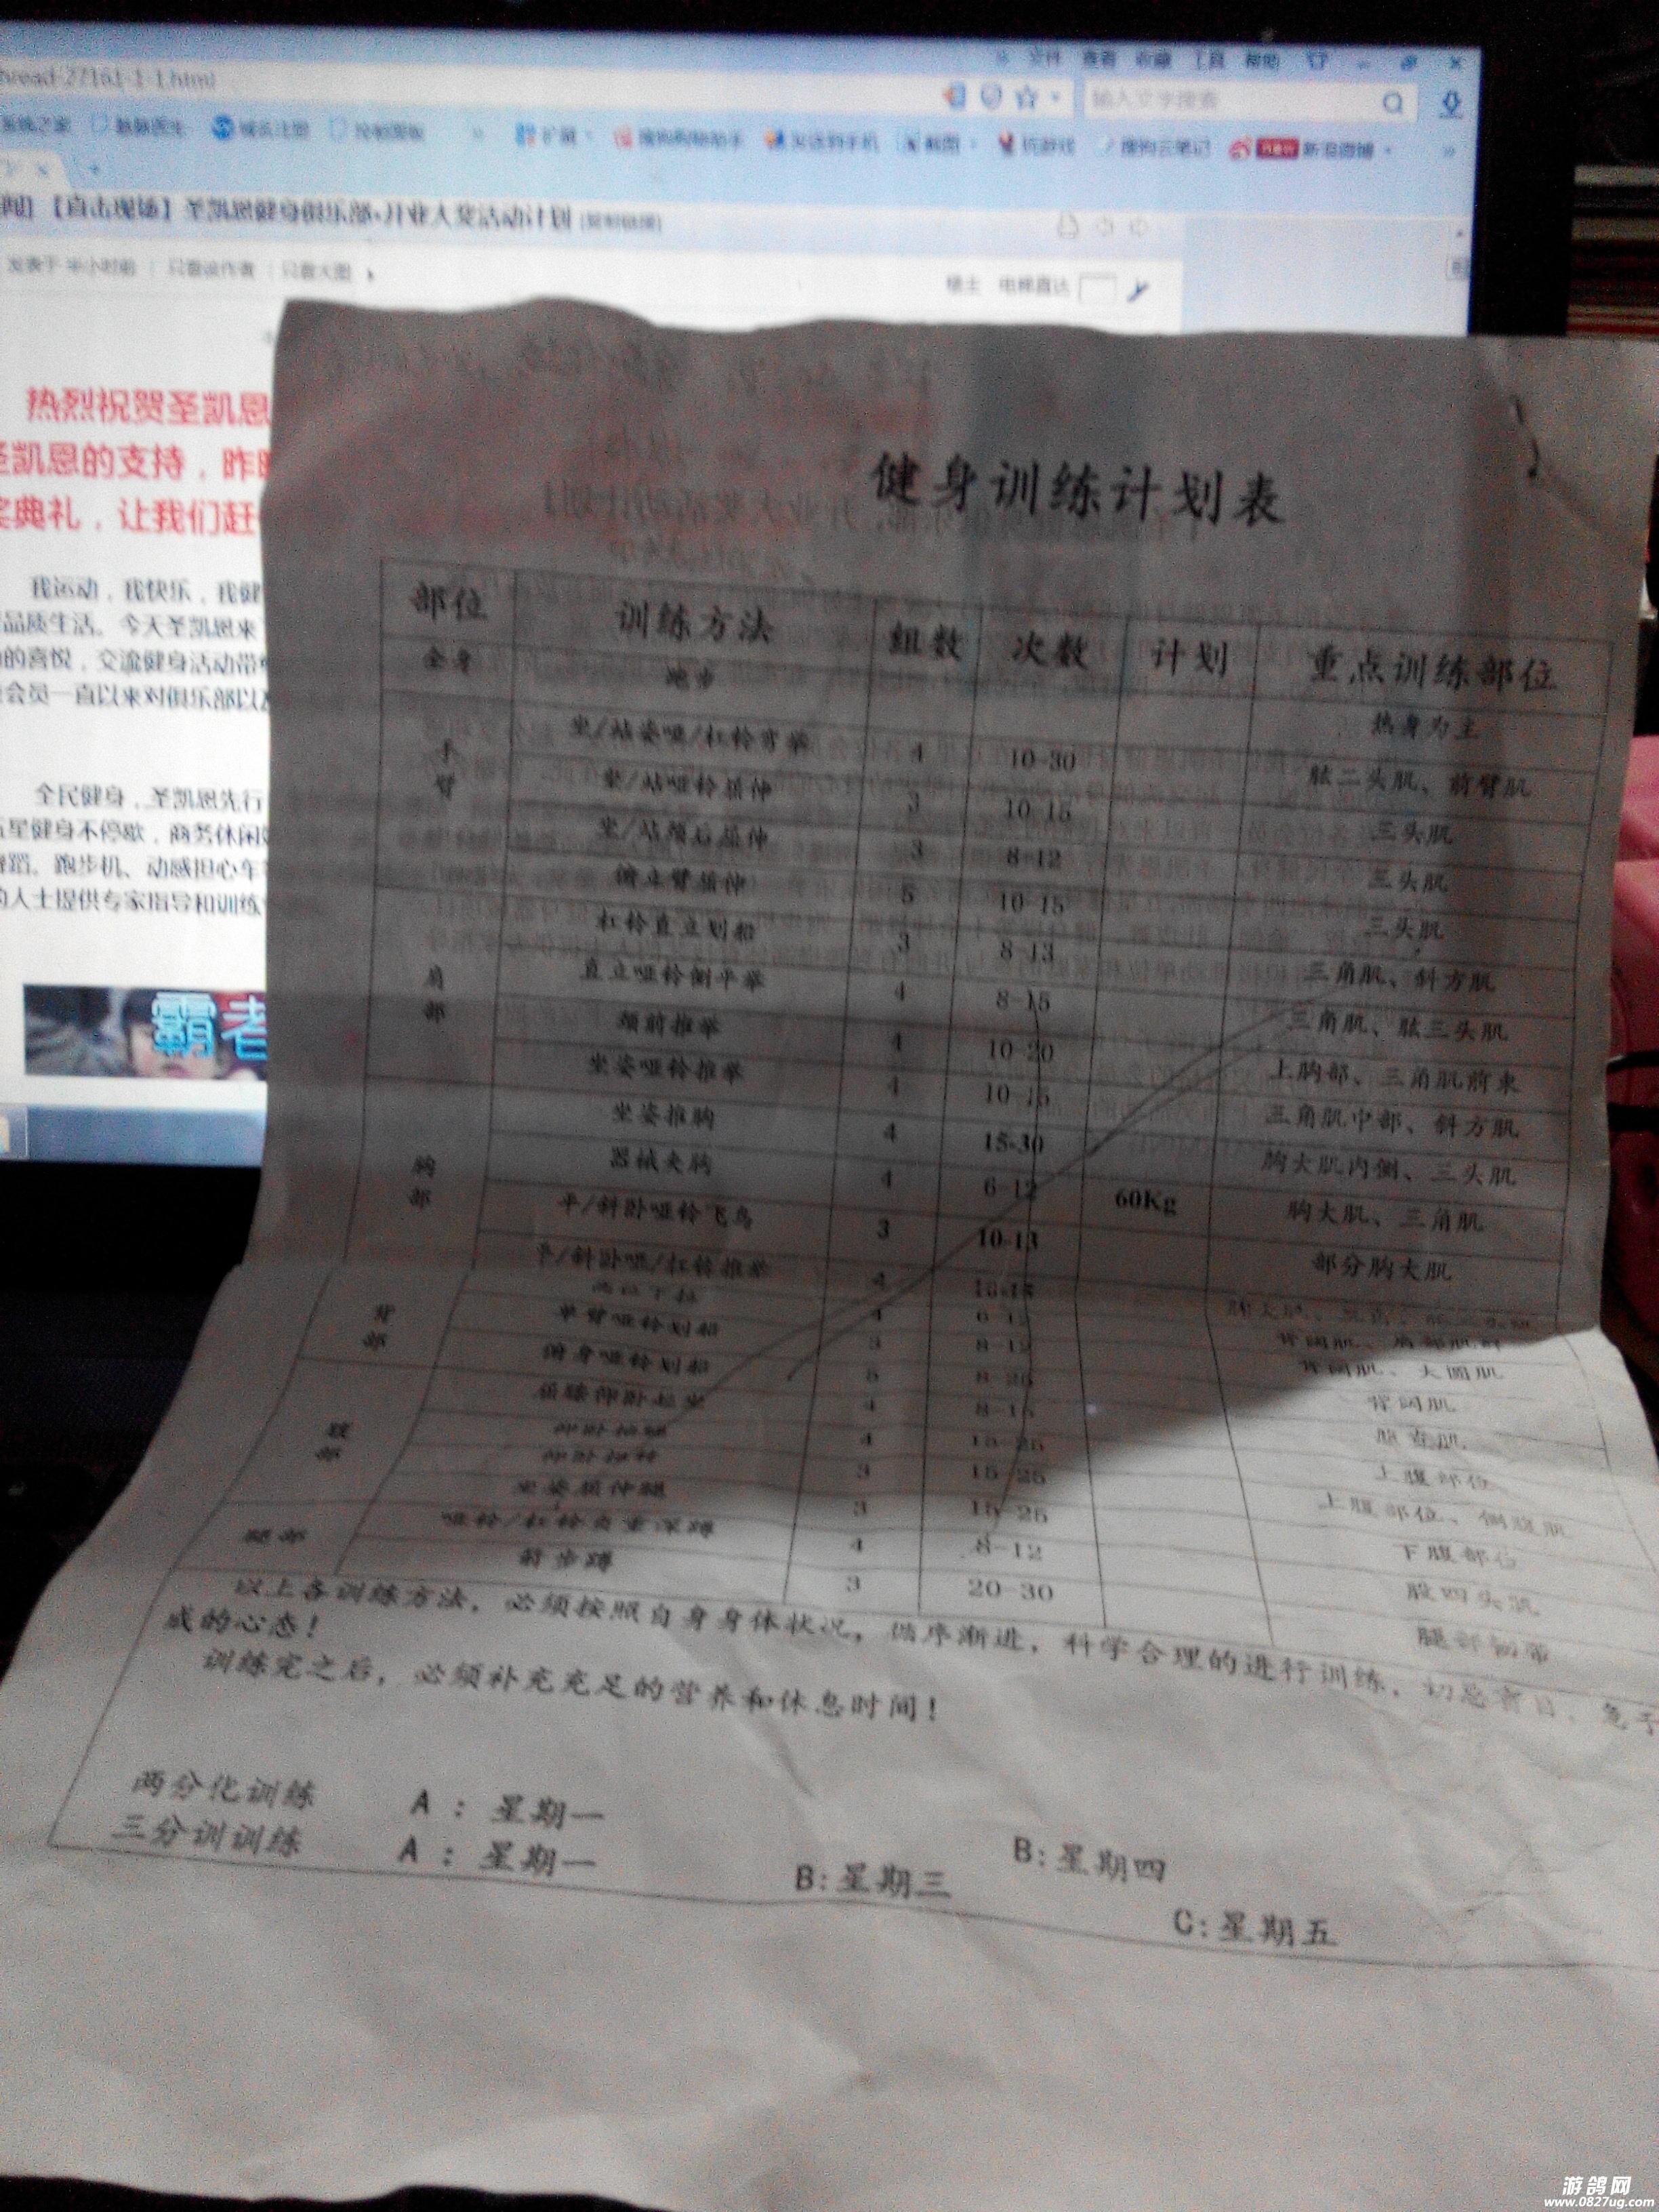 hread-27161-1-1.html
文件 查看 收藏 工具 帮助
输入文字搜索
扩展 搜狗购物助手 发送到手机 截图 玩游戏 搜狗云笔记 新浪微博
【直击现场】圣凯恩健身俱乐部·开业大奖活动计划 [复制链接]
发表于 半小时前 | 只看该作者 | 只看大图
楼主 电梯直达
热烈祝贺圣凯恩
圣凯恩的支持，昨晚
奖典礼，让我们赶
我运动，我快乐，我健
品质生活。今天圣凯恩来
的喜悦，交流健身活动带
会员一直以来对俱乐部以及
全民健身，圣凯恩先行
五星健身不停歇，商务休闲
舞蹈、跑步机、动感担心车
的人士提供专家指导和训练
霸者
健身训练计划表
部位 训练方法 组数 次数 计划 重点训练部位
全身 跑步 热身为主
手臂 坐/站姿哑/杠铃弯举 4 10-30 肱二头肌、前臂肌
坐/站哑铃屈伸 3 10-15 三头肌
坐/站颈后屈伸 3 8-12 三头肌
俯立臂屈伸 5 10-15 三头肌
肩部 杠铃直立划船 3 8-13 三角肌、斜方肌
直立哑铃侧平举 4 8-15 三角肌、肱三头肌
颈前推举 4 10-20 上胸部、三角肌前束
坐姿哑铃推举 4 10-15 三角肌中部、斜方肌
胸部 坐姿推胸 4 15-30 胸大肌内侧、三头肌
器械夹胸 4 6-12 60Kg 胸大肌、三角肌
平/斜卧哑铃飞鸟 3 10-13 部分胸大肌
平/斜卧哑/杠铃推举 4
背部 高位下拉 4 6-12 背阔肌、肩部肌群
单臂哑铃划船 3 8-12 背阔肌、大圆肌
俯身哑铃划船 5 8-25 背阔肌
腹部 屈膝仰卧起坐 4 8-15 腹直肌
仰卧抬腿 4 15-25 上腹部位
仰卧扭转 3 15-25 上腹部位、侧腹肌
坐姿屈伸腿 3 15-25 下腹部位
腿部 哑铃/杠铃负重深蹲 4 8-12 股四头肌
箭步蹲 3 20-30 腿部韧带
以上各训练方法，必须按照自身身体状况，循序渐进，科学合理的进行训练，切忌盲目、急于
成的心态！
训练完之后，必须补充充足的营养和休息时间！
两分化训练 A：星期一 B:星期四
三分训训练 A：星期一 B:星期三 C:星期五
游鸽网
www.0827ug.com